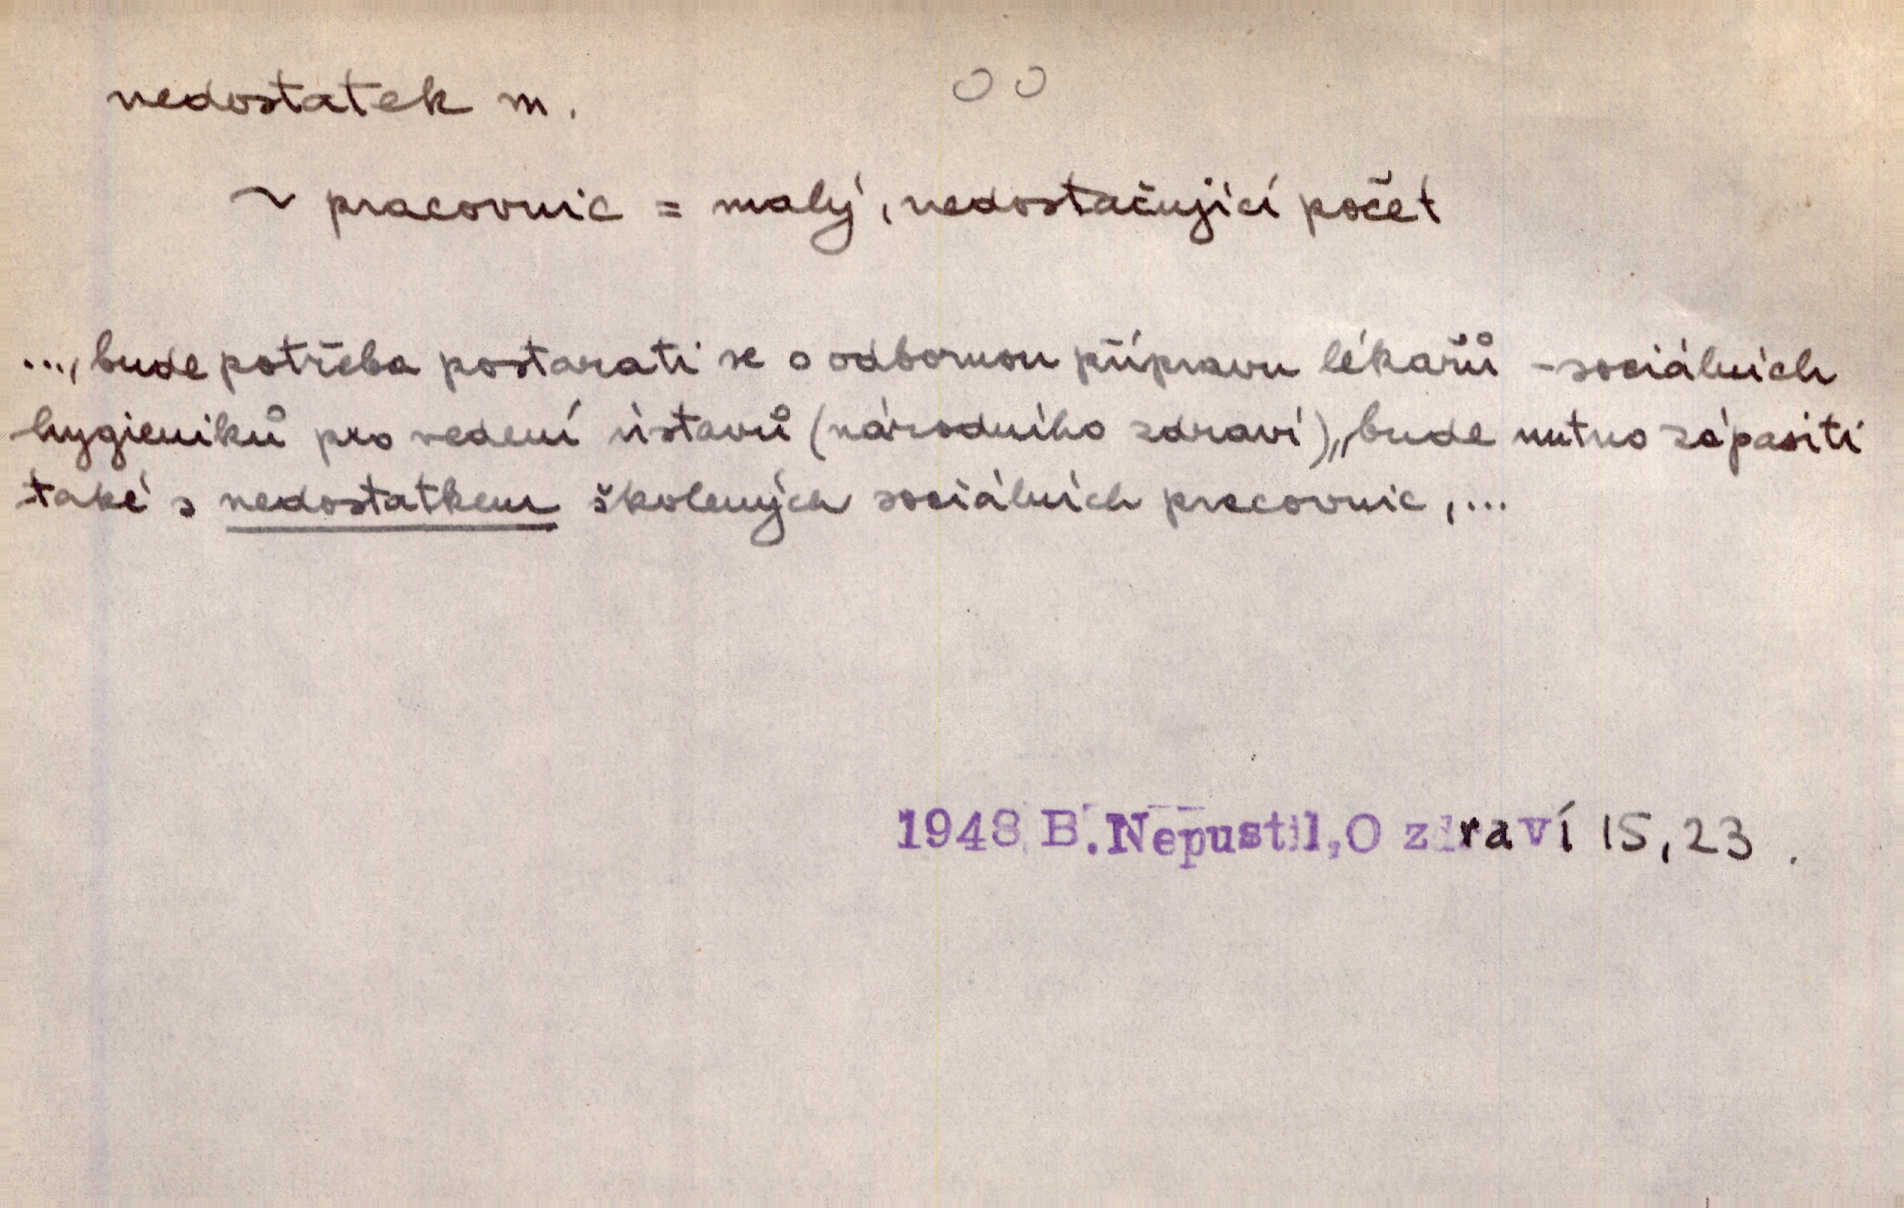 nedostatek m. oo
~ pracovnic = malý, nedostačující počet
..., bude potřeba postarati se o odbornou přípravu lékařů - sociálních
hygieniků pro vedení ústavů (národního zdraví),, bude nutno zápasiti
také s nedostatkem školených sociálních pracovnic, ...
1948 B.Nepustil, O zdraví 15, 23.